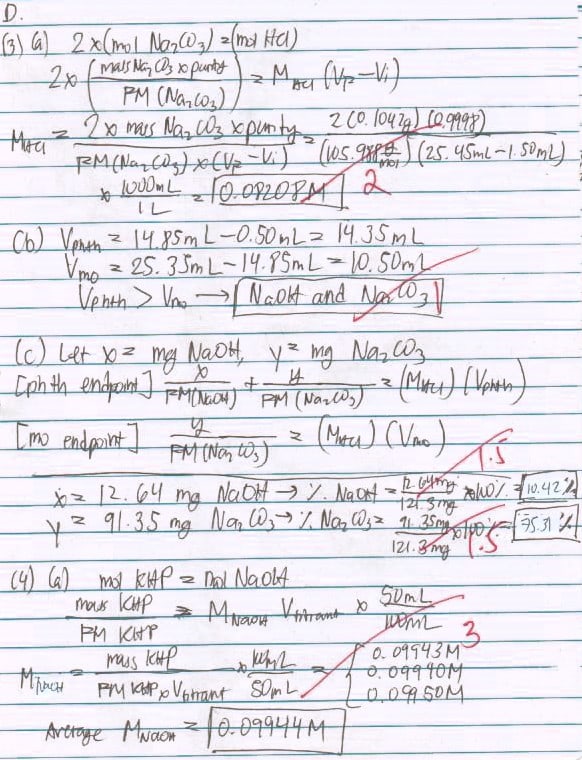 D.
(3) (a) 2 x (mol Na2CO3) = (mol HCl)
2 x (mass Na2CO3 x purity / FM (Na2CO3)) = MHCl (Vf - Vi)
MHCl = 2 x mass Na2CO3 x purity / FM(Na2CO3) x (Vf - Vi) = 2(0.1042g)(0.9998) / (105.988 g/mol)(25.45mL - 1.50mL)
x 1000mL / 1L = 0.08208M 2
(b) Vphth = 14.85mL - 0.50mL = 14.35mL
Vmo = 25.35mL - 14.85mL = 10.50mL
Vphth > Vmo → NaOH and Na2CO3 1
(c) Let x = mg NaOH, y = mg Na2CO3
[phth endpoint] x / FM(NaOH) + y / FM(Na2CO3) = (MHCl)(Vphth)
[mo endpoint] y / FM(Na2CO3) = (MHCl)(Vmo)
1.5
x = 12.64 mg NaOH → % NaOH = 12.64mg / 121.3mg x 100% = 10.42%
y = 91.35 mg Na2CO3 → % Na2CO3 = 91.35mg / 121.3mg x 100% = 75.31%
1.5
(4) (a) mol KHP = mol NaOH
mass KHP / FM KHP = MNaOH Vtitrant x 50mL / 100mL
3
MNaOH = mass KHP / FM KHP x Vtitrant x 100mL / 50mL = { 0.09943M
0.09940M
0.09950M
Average MNaOH = 0.09944M